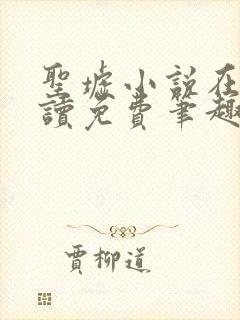 聖墟小說在
讀免費筆趣
賈柳道